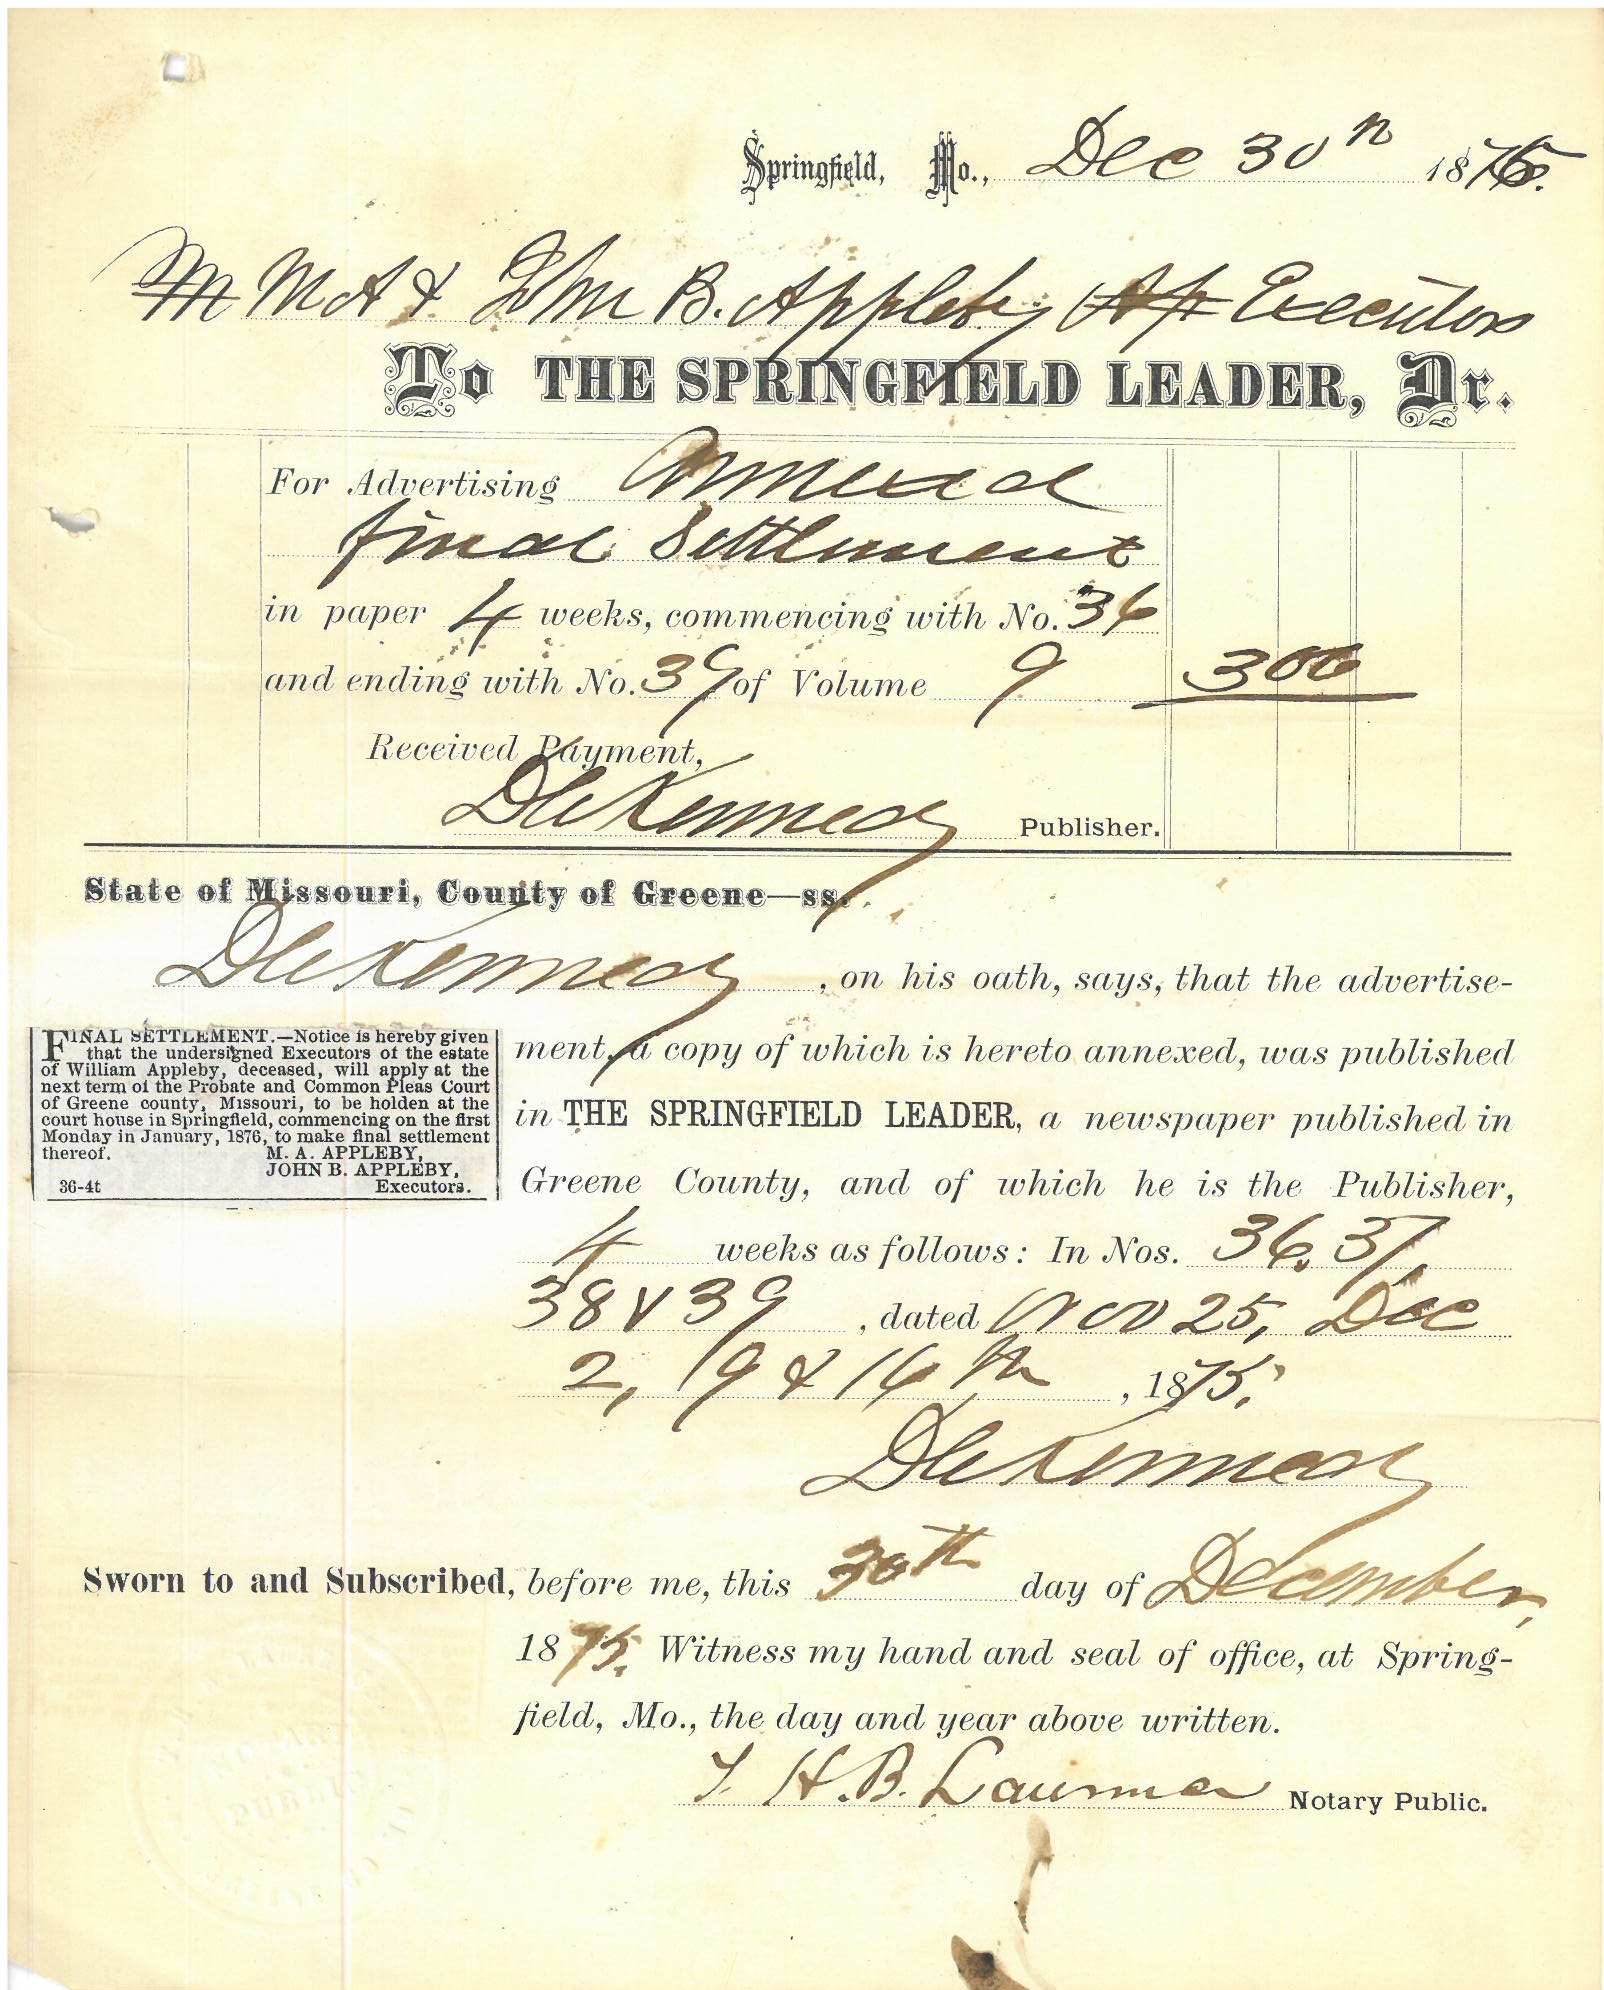 Springfield, Mo., Dec 30th 1875.
M M A & Jno B. Appleby Executors
To THE SPRINGFIELD LEADER, Dr.
For Advertising Annexed
final Settlement
in paper 4 weeks, commencing with No. 36
and ending with No. 39 of Volume 9 3 00
Received Payment,
D C Kennedy Publisher.
State of Missouri, County of Greene—ss.
D C Kennedy, on his oath, says, that the advertise-
ment, a copy of which is hereto annexed, was published
in THE SPRINGFIELD LEADER, a newspaper published in
Greene County, and of which he is the Publisher,
4 weeks as follows: In Nos. 36, 37,
38 & 39, dated Nov 25, Dec
2, 9 & 16th, 1875.
D C Kennedy
FINAL SETTLEMENT.—Notice is hereby given
that the undersigned Executors of the estate
of William Appleby, deceased, will apply at the
next term of the Probate and Common Pleas Court
of Greene county, Missouri, to be holden at the
court house in Springfield, commencing on the first
Monday in January, 1876, to make final settlement
thereof. M. A. APPLEBY,
JOHN B. APPLEBY,
36-4t Executors.
Sworn to and Subscribed, before me, this 30th day of December,
1875. Witness my hand and seal of office, at Spring-
field, Mo., the day and year above written.
H. B. Notary Public.
PUBLIC